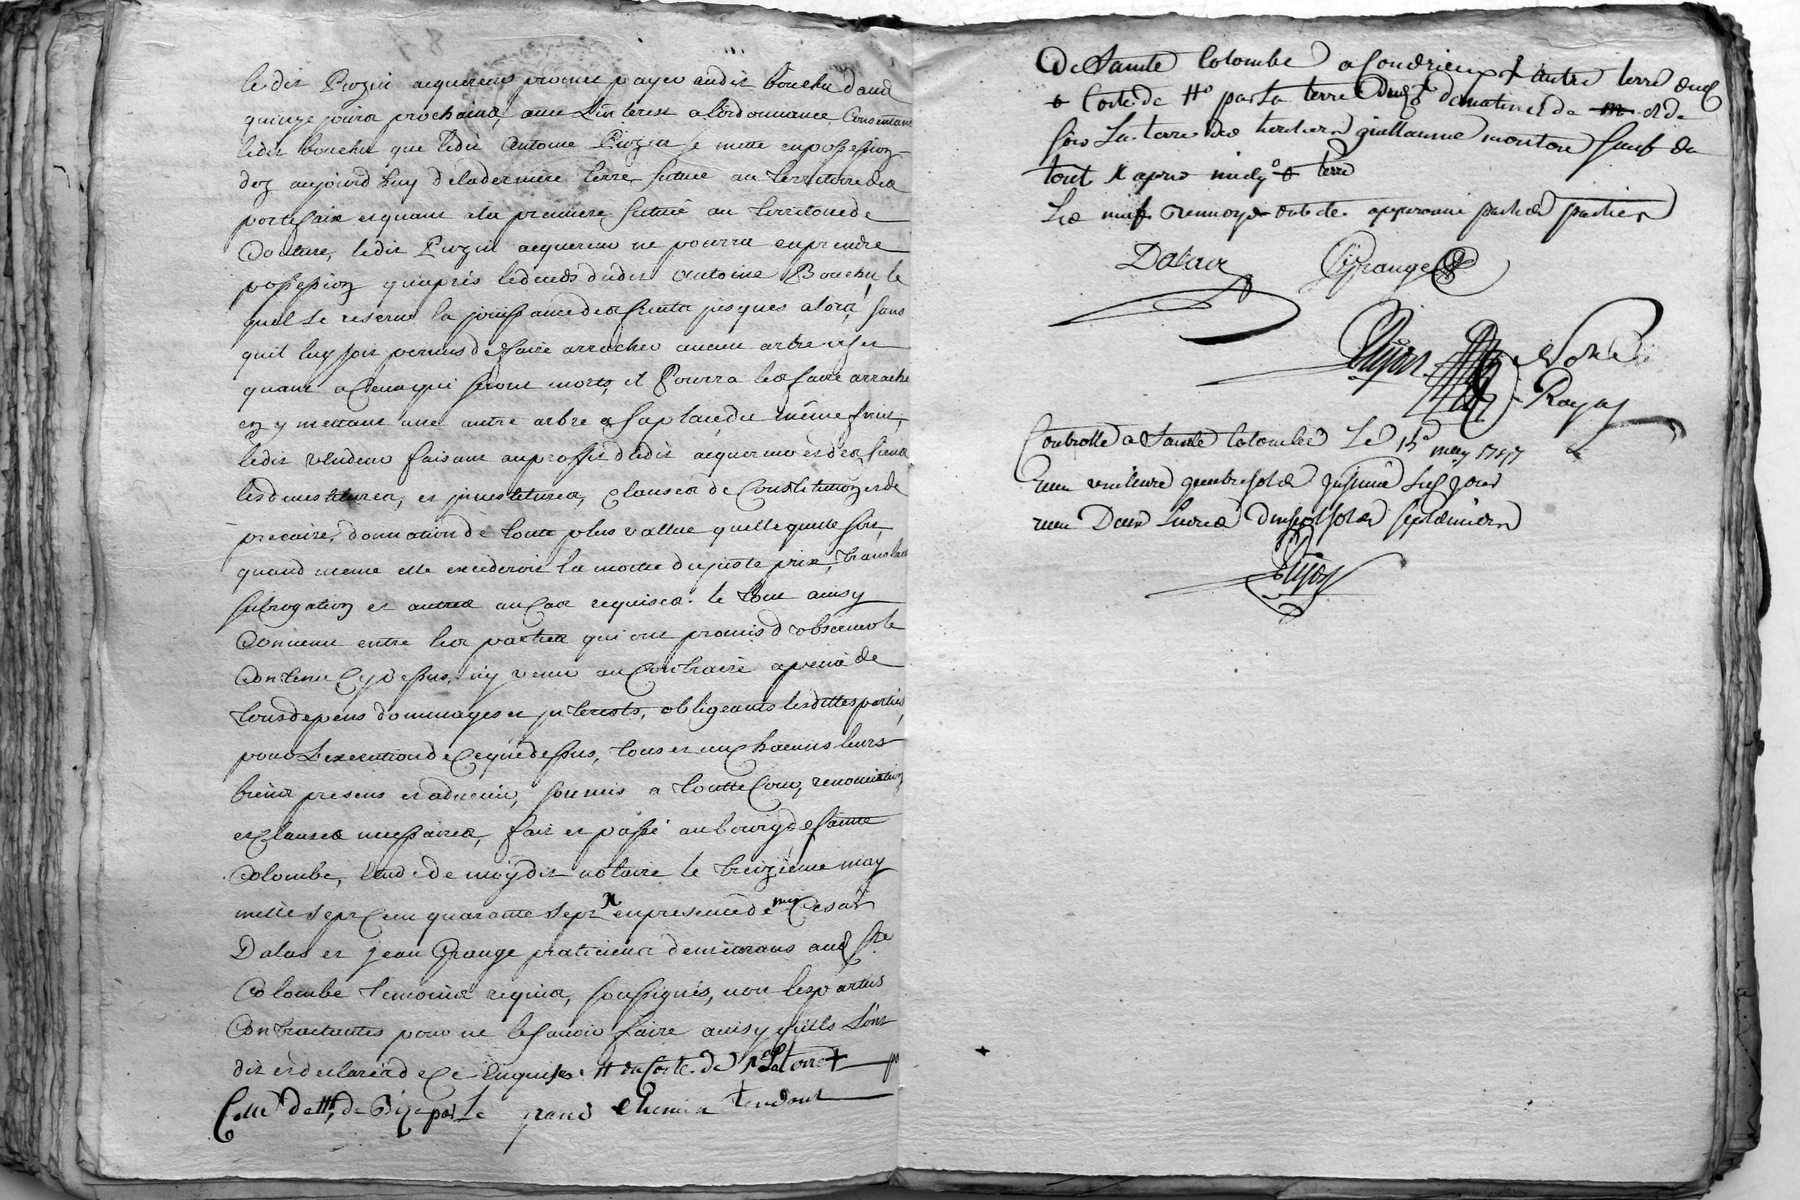 ledit Piozin acquereur promet payer audit bouchu dans
quinze jours prochains, avec L'interest a l'ordonnance, Consentant
ledit bouchu que ledit Antoine Piozin se mette en possession
dez aujourd'huy de la derniere terre située au territoire des
portefaix et quant a la premiere située au territoire de
Couture, ledit Piozin acquereur ne pourra en prendre
possession qu'apres le deceds dudit Antoine Bouchu, le
quel se reserve la jouissance des fruits jusques alors, sans
qu'il luy soit permis de faire arracher aucun arbre
quant a Ceux qui seront morts, il Pourra les faire arracher
en y mettant une autre arbre a sa place du même fruit,
ledit vendeur faisant au proffit dudit acquereur et des siens
les demestitures, et jnvestitures, Clauses de Constitution et de
precaire, donnation de toute plus vallue quelle quelle soit,
quand meme elle excederoit la moitié du juste prix, translat
subrogation et autres au Cas requises. le tout ainsy
Convenu entre les parties qui ont promis d'observer le
Contenu Cy dessus, n'y venir au Contraire a peine de
tous depens dommages et jnterests, obligeants lesdittes parties
pour L'execution de Ce que dessus, tous et un Chacuns leurs
biens presens et advenir, soumis a toutte Cour, renonciations
et Clauses necessaires, fait et passé au bourg de sainte
Colombe, étude de moy dit notaire le treizieme may
mille sept Cent quarante sept en presence de me Cesar
Dalas et jean Grange praticiens demeurans aud Ste
Colombe temoins requis, soussignés, non les parties
Contractantes pour ne le sçavoir faire ainsy qu'ils L'ont
dit et declaré de Ce Enquises. # du Costé de
Celle de de Bize par Le grand Chemin tendant
de Sainte Colombe a Condrieux autre terre dud
Costé de par la terre dud de matines de et de
soir La terre des heritiers guillaume monton sauf du
tout X apres midy terre
Les neuf renvoys approuvé par les parties
Dalas Grange
Nore
Royal
Controllé a Sainte Colombe Le 15e may 1747
Receu quatre sols
receu Deux Livres dix sept sols